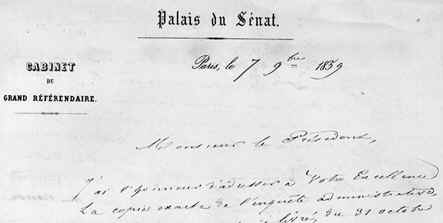 Palais du Sénat.
CABINET
DU
GRAND RÉFÉRENDAIRE.
Paris, le 7 9bre 1859
Monsieur le Président,
J'ai l'honneur d'adresser à Votre Excellence
la copie exacte de l'enquête administrative
livré, du 31 octobre